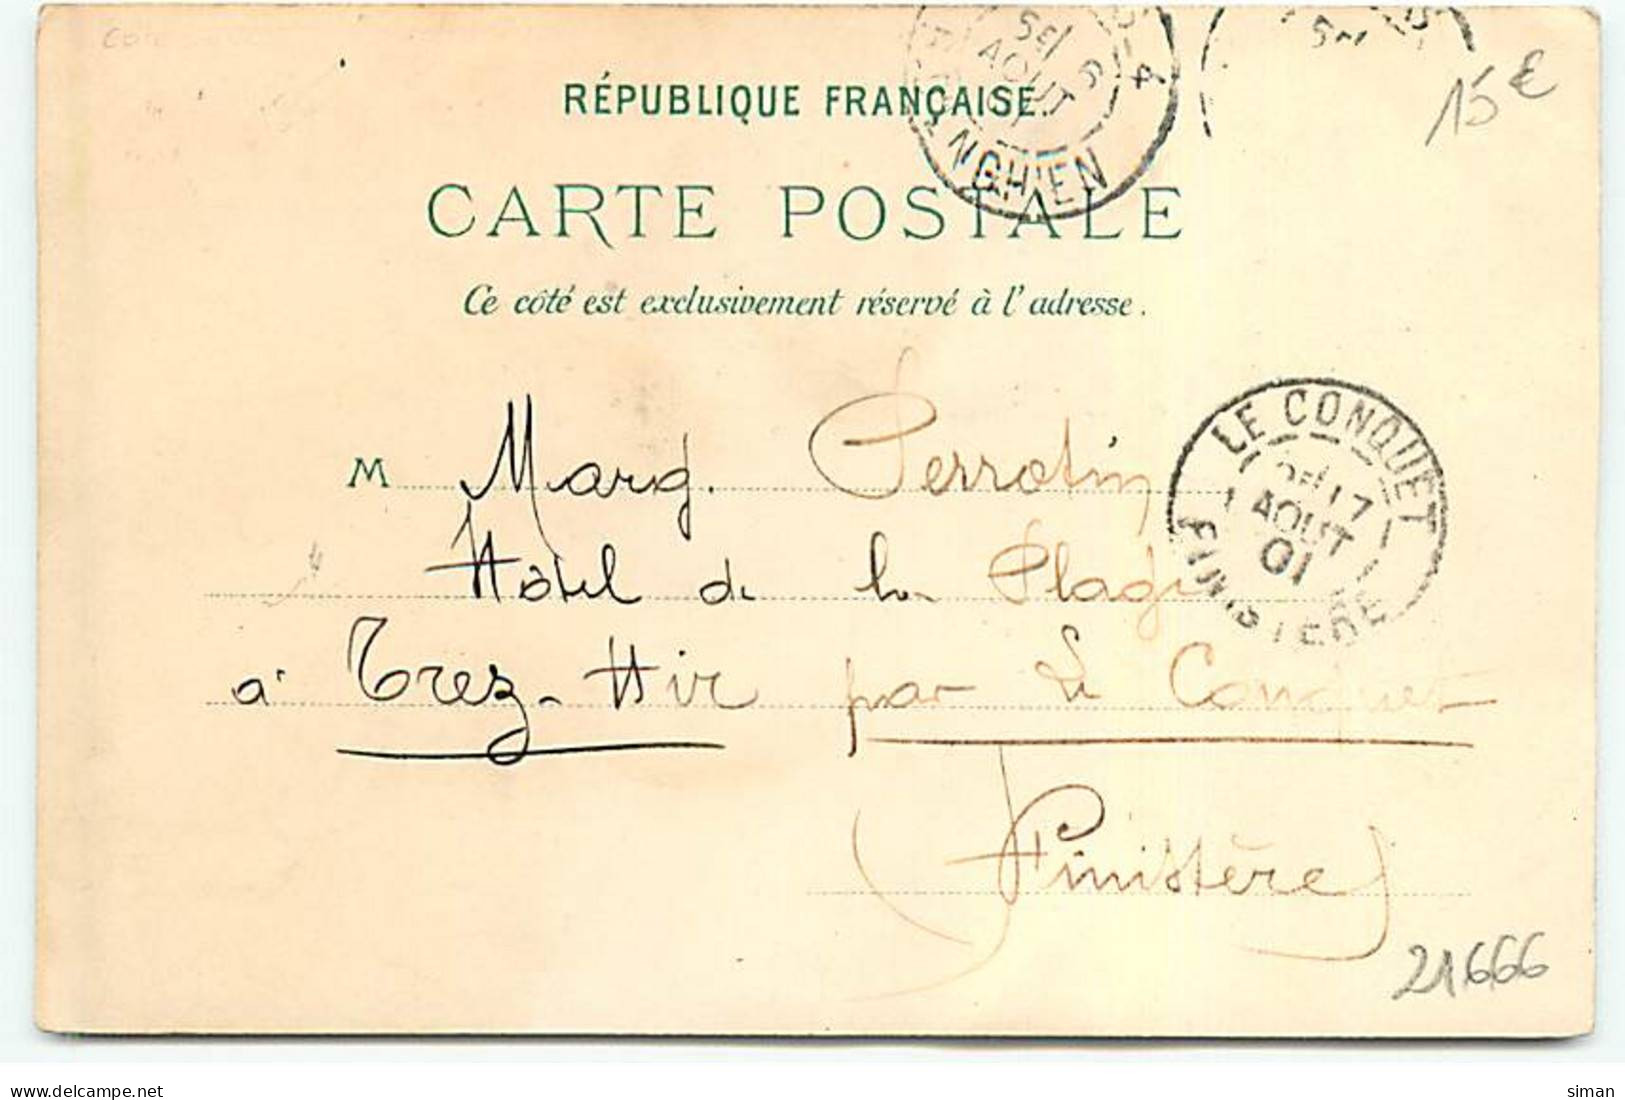 15 €
RÉPUBLIQUE FRANÇAISE.
AOUT
CARTE POSTALE
Ce côté est exclusivement réservé à l'adresse.
LE CONQUET
AOUT
01
FINISTERE
M Marg. Perrotin
Hôtel de la Plage
à Trez-Hir par Le Conquet
(Finistère)
21666
delcampe.net
siman